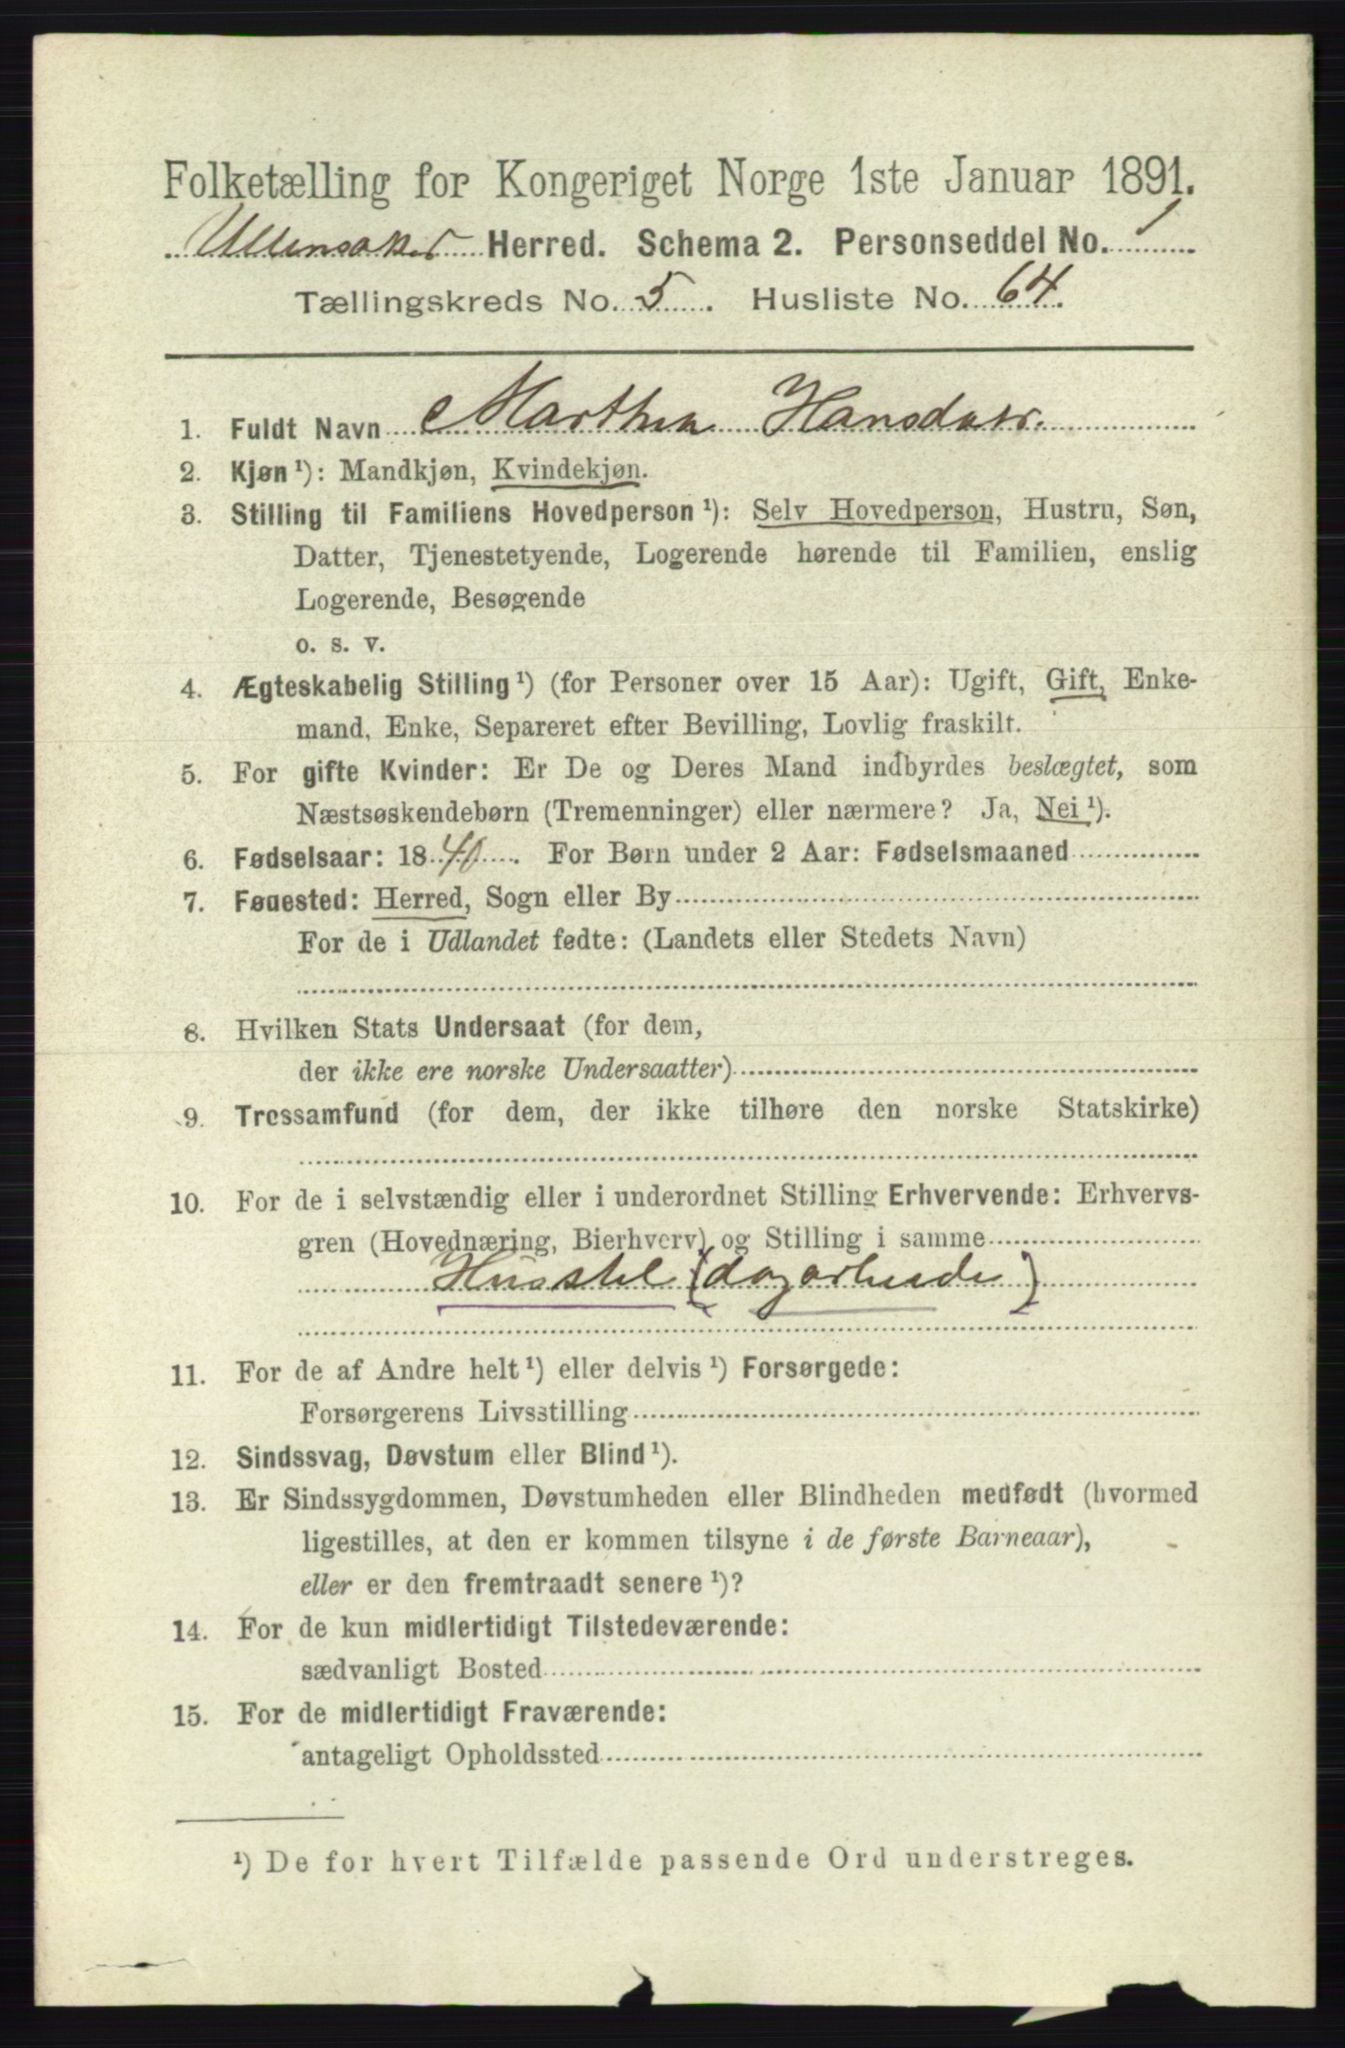 Folketælling for Kongeriget Norge 1ste Januar 1891.
Ullensaker Herred. Schema 2. Personseddel No. 1
Tællingskreds No. 5. Husliste No. 64.
1. Fuldt Navn Marthea Hansdatr.
2. Kjøn¹): Mandkjøn, Kvindekjøn.
3. Stilling til Familiens Hovedperson¹): Selv Hovedperson, Hustru, Søn,
Datter, Tjenestetyende, Logerende hørende til Familien, enslig
Logerende, Besøgende
o. s. v.
4. Ægteskabelig Stilling¹) (for Personer over 15 Aar): Ugift, Gift, Enke-
mand, Enke, Separeret efter Bevilling, Lovlig fraskilt.
5. For gifte Kvinder: Er De og Deres Mand indbyrdes beslægtet, som
Næstsøskendebørn (Tremenninger) eller nærmere? Ja, Nei¹).
6. Fødselsaar: 1840. For Børn under 2 Aar: Fødselsmaaned
7. Føuested: Herred, Sogn eller By
For de i Udlandet fødte: (Landets eller Stedets Navn)
8. Hvilken Stats Undersaat (for dem,
der ikke ere norske Undersaatter)
9. Trossamfund (for dem, der ikke tilhøre den norske Statskirke)
10. For de i selvstændig eller i underordnet Stilling Erhvervende: Erhvervs-
gren (Hovednæring, Bierhverv) og Stilling i samme
Husstel (dagarbeide)
11. For de af Andre helt¹) eller delvis¹) Forsørgede:
Forsørgerens Livsstilling
12. Sindssvag, Døvstum eller Blind¹).
13. Er Sindssygdommen, Døvstumheden eller Blindheden medfødt (hvormed
ligestilles, at den er kommen tilsyne i de første Barneaar),
eller er den fremtraadt senere¹)?
14. For de kun midlertidigt Tilstedeværende:
sædvanligt Bosted
15. For de midlertidigt Fraværende:
antageligt Opholdssted
¹) De for hvert Tilfælde passende Ord understreges.